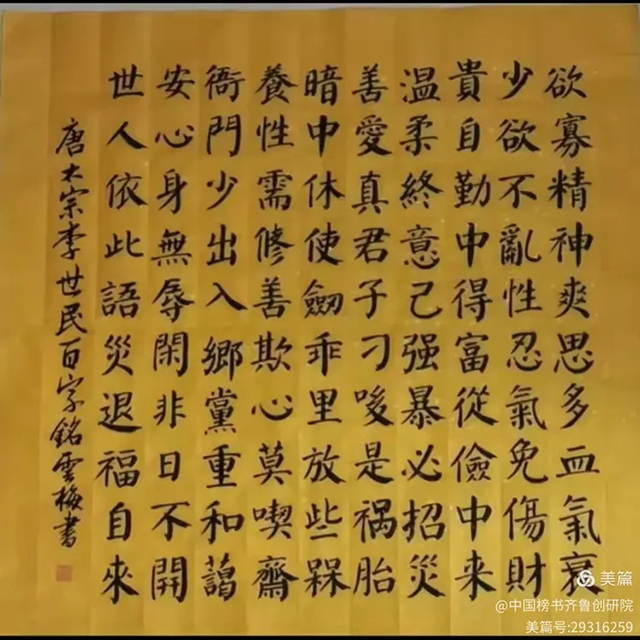 欲寡精神爽思多血氣衰
少欲不亂性忍氣免傷財
貴自勤中得富從儉中来
温柔終意己强暴必招災
善愛真君子刁唆是祸胎
暗中休使劒乖里放些槑
養性需修善欺心莫喫齋
衙門少出入鄉黨重和藹
安心身無辱閑非日不開
世人依此語災退福自來
唐太宗李世民百字銘雲梅書
美篇
@中国榜书齐鲁创研院
美篇号:29316259